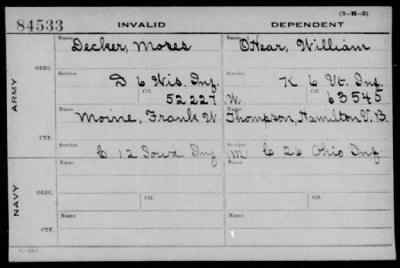 (3-16-3)
84533 INVALID DEPENDENT
Name Decker, Moses Name O'Hear, William
ORIG. Service Service
D 6 Wis. Inf. K 6 Vt. Inf.
ARMY Ctf. 52227 W. Ctf. 63545
Name Name
Thompson, Hamilton V. B.
CTF. Service Service
C 12 Iowa Inf M C 26 Ohio Inf.
Name Name
NAVY ORIG. Service Ctf. Service Ctf.
Name Name
CTF. Service Service